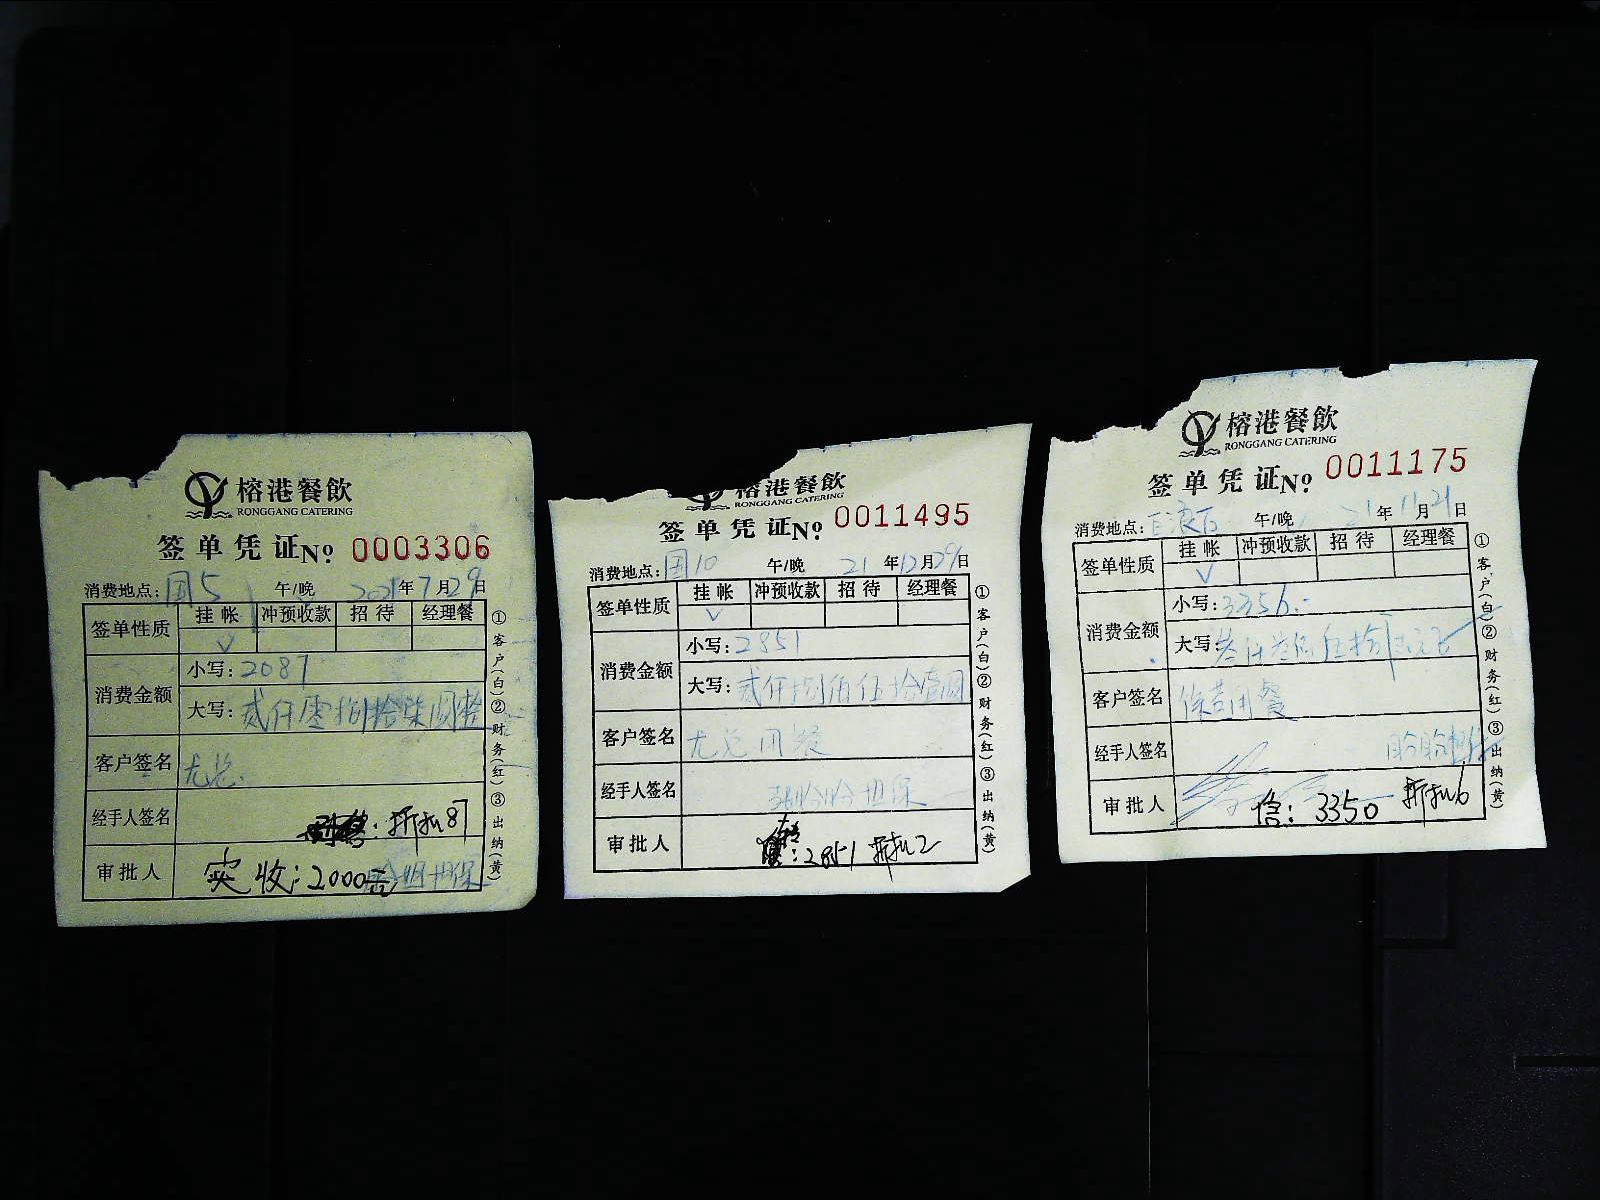 榕港餐飲
RONGGANG CATERING
签单凭证 No 0003306
消费地点: 国5 午/晚 2021年7月29日
签单性质 挂帐 冲预收款 招待 经理餐
√
消费金额 小写: 2087
大写: 贰仟零捌拾柒圆整
客户签名 尤总
经手人签名 折扣87
审批人 实收: 2000元 担保
①客户(白)②财务(红)③出纳(黄)
榕港餐飲
RONGGANG CATERING
签单凭证 No 0011495
消费地点: 国10 午/晚 21年12月29日
签单性质 挂帐 冲预收款 招待 经理餐
√
消费金额 小写: 2851
大写: 贰仟捌佰伍拾壹圆
客户签名 尤总用餐
经手人签名 担保
审批人 : 2851 折扣2
①客户(白)②财务(红)③出纳(黄)
榕港餐飲
RONGGANG CATERING
签单凭证 No 0011175
消费地点: 午/晚 21年11月21日
签单性质 挂帐 冲预收款 招待 经理餐
√
消费金额 小写: 3356.-
大写: 叁仟叁佰伍拾陆元正
客户签名 用餐
经手人签名 担保
审批人 3350 折扣6
①客户(白)②财务(红)③出纳(黄)